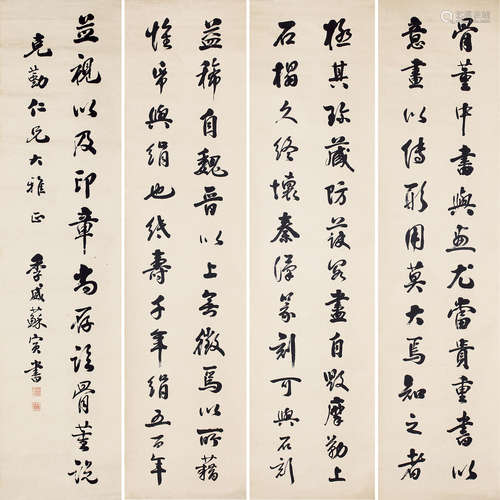 骨董中書與画尤當貴重書以
意畫以傳形用莫大焉知之者
極其珍藏防護若盡自毀摩勒上
石搨久終壞秦漢篆刻可與石刻
益稀自魏晉以上無徵焉以所藉
惟帋與絹也紙壽千年絹五百年
並視以及印章尚存骨董說
克勤仁兄大雅正
季盛蘇寅書